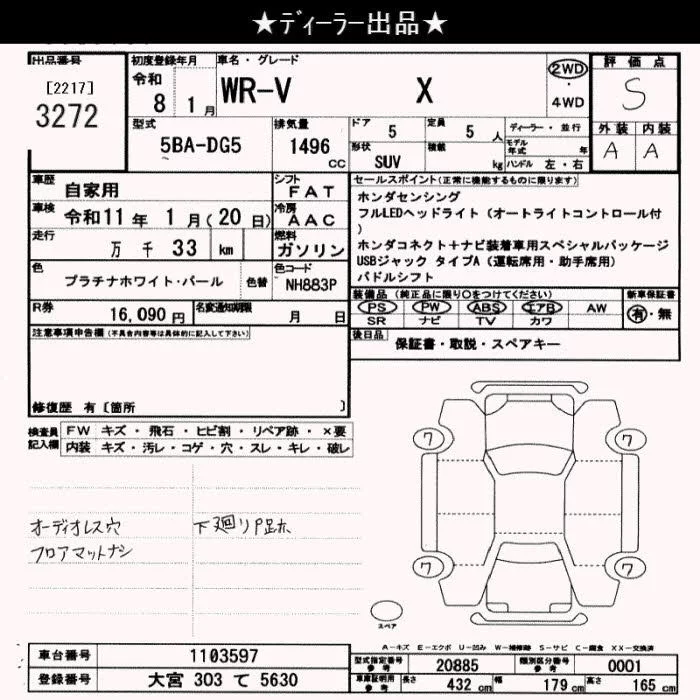 ★ディーラー出品★
出品番号
[2217]
3272
初度登録年月
令和
8 1 月
車名・グレード
WR-V X
2WD
・
4WD
評価点
S
外装 内装
A A
型式
5BA-DG5
排気量
1496 cc
ドア
5
定員
5 人
形状
SUV
積載
kg
ディーラー・並行
モデル年式 年
ハンドル 左・右
車歴
自家用
シフト
FAT
車検
令和11年 1月(20日)
冷房
AAC
走行
万 千 33 km
燃料
ガソリン
色
プラチナホワイト・パール
色替
色コード
NH883P
R券
16,090円
名変通知期限
月 日
セールスポイント(正常に機能するものに限ります)
ホンダセンシング
フルLEDヘッドライト(オートライトコントロール付
)
ホンダコネクト+ナビ装着車用スペシャルパッケージ
USBジャック タイプA(運転席用・助手席用)
パドルシフト
装備品(純正品に限り○をつけてください)
PS PW ABS エアB AW
SR ナビ TV カワ
新車保証書
有・無
後日品
保証書・取説・スペアキー
注意事項申告欄(不具合内容等は具体的に記入して下さい)
修復歴 有〔箇所 〕
検査員
記入欄
FW キズ・飛石・ヒビ割・リペア跡・×要
内装 キズ・汚レ・コゲ・穴・スレ・キレ・破レ
オーディオレス穴
フロアマットナシ
下廻りP跡ホ
7 7
7 7
スペア
A-キズ E-エクボ U-凹み W-補修跡 S-サビ C-腐食 XX-交換済
車台番号
1103597
登録番号
大宮 303 て 5630
型式指定番号
参考
20885
類別区分番号
参考
0001
車庫証明用
参考
長さ 432 cm 幅 179 cm 高さ 165 cm